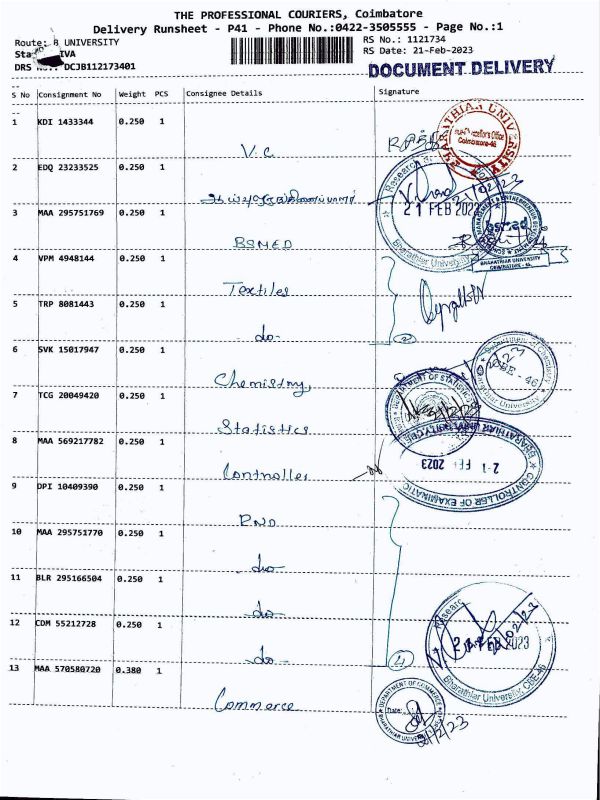 THE PROFESSIONAL COURIERS, Coimbatore
Delivery Runsheet - P41 - Phone No.:0422-3505555 - Page No.:1
Route: B UNIVERSITY
RS No.: 1121734
RS Date: 21-Feb-2023
DRS No.: DCJB112173401
DOCUMENT DELIVERY
S No Consignment No Weight PCS Consignee Details Signature
1 KDI 1433344 0.250 1
V.C
2 EDQ 23233525 0.250 1
3 MAA 295751769 0.250 1
BSMED
4 VPM 4948144 0.250 1
Textiles
5 TRP 8081443 0.250 1
do-
6 SVK 15017947 0.250 1
Chemistry
7 TCG 20049420 0.250 1
Statistics
8 MAA 569217782 0.250 1
Controller
9 DPI 10409390 0.250 1
RND
10 MAA 295751770 0.250 1
do
11 BLR 295166504 0.250 1
do
12 CDM 55212728 0.250 1
do-
13 MAA 570580720 0.380 1
Commerce
BHARATHIAR UNIVERSITY
Coimbatore-46
21 FEB 2023
Bharathiar University
bsmed
BHARATHIAR UNIVERSITY
COIMBATORE - 46.
Department of Chemistry
Bharathiar University
CBE-46
DEPARTMENT OF STATISTICS
BHARATHIAR UNIVERSITY
CONTROLLER OF EXAMINATIONS
21 FEB 2023
21 FEB 2023
Bharathiar University, CBE-46
DEPARTMENT OF COMMERCE
BHARATHIAR UNIVERSITY
Date: